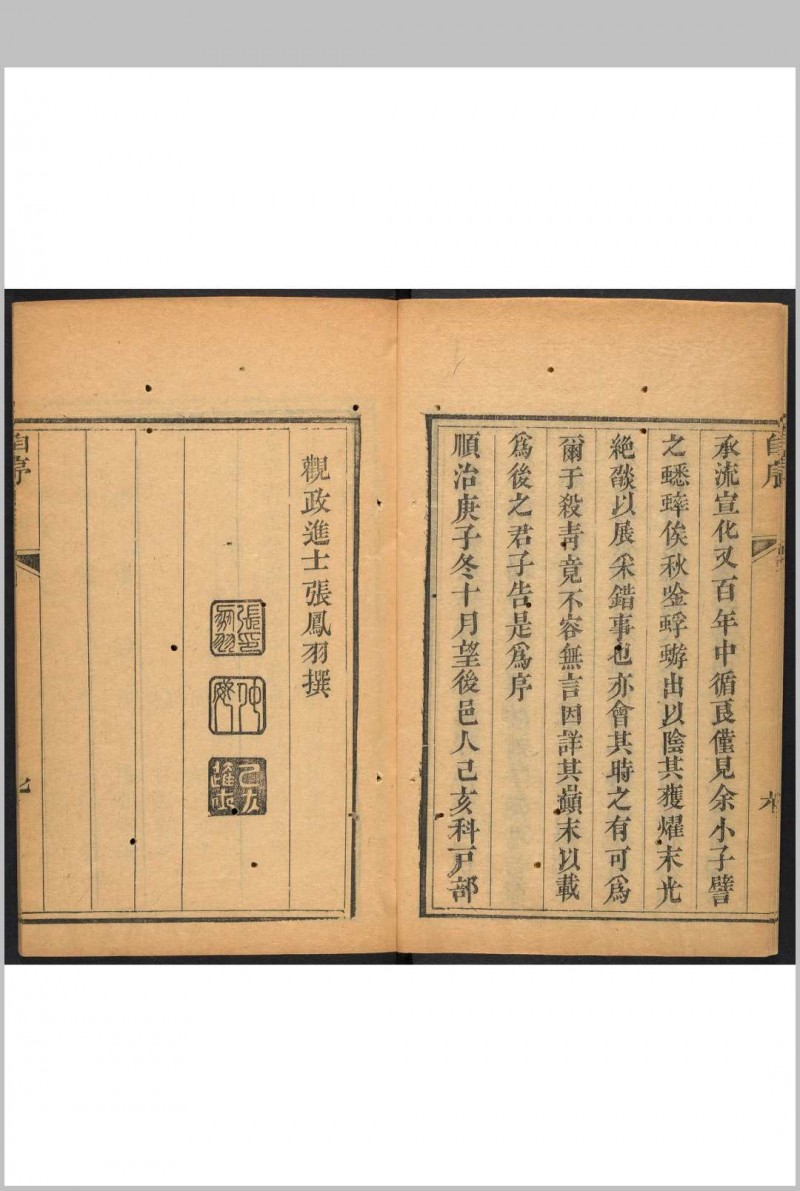 自序
承流宣化又百年中循良僅見余小子譬
之蟋蟀俟秋唫蜉蝣出以陰其獲燿末光
絶燄以展采錯事也亦會其時之有可爲
爾于殺靑竟不容無言因詳其顚末以載
爲後之君子告是爲序
順治庚子冬十月望後邑人己亥科戸部
六
觀政進士張鳳羽撰
張鳳羽印
自序
七